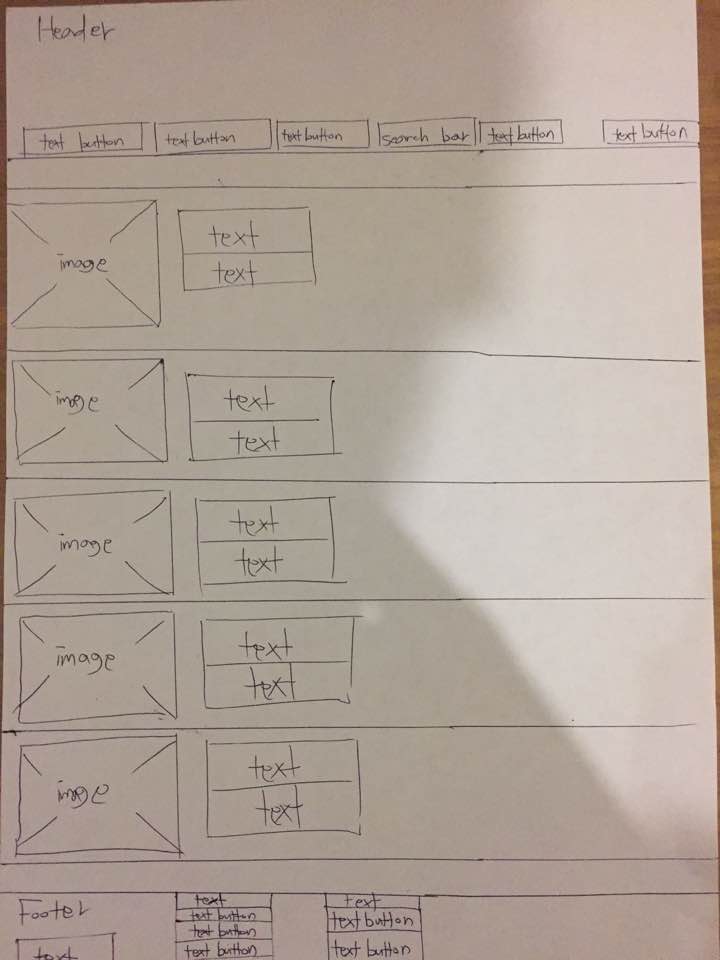 Header
text button text button text button search bar text button text button
image
text
text
image
text
text
image
text
text
image
text
text
image
text
text
Footer
text
text
text button
text button
text button
text
text button
text button